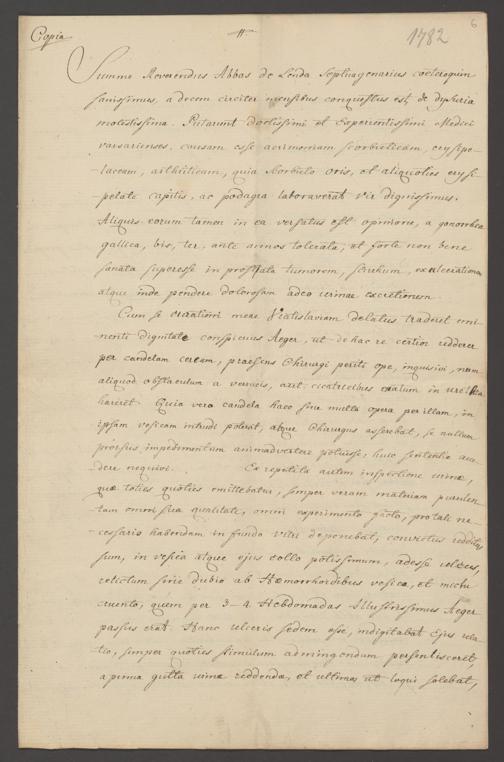 6
Copia
1782
Summe Reverendus Abbas de Lenda Septuagenarius caeteroquin
sanissimus, a decem circiter mensibus conquestus est de dysuria
molestissima. Putarunt doctissimi et Experientissimi Medici
varsavienses, causam esse acrimoniam scorbuticam, erysipe-
-laceam, arthriticam, quia scorbuto oris, et aliquoties erysi-
-pelate capitis, ac podagra laboraverat vir dignissimus.
Aliquis eorum tamen in ea versatus est opinione, a gonorrhea
gallica, bis, ter, ante annos tolerata, et forte non bene
sanata superesse in prostata tumorem, scirrhum, exulcerationem
atque inde pendere dolorosam adeo urinae excretionem.
Cum se curationi meae Vratislaviam delatus traderet emi-
nenti dignitate conspicuus Aeger, ut de hac re certior redderer
per candelam ceream, praesens Chirurgi periti ope, inquisivi, num
aliquod obstaculum a verrucis, aut cicatricibus enatum in urethra
haereret. Quia vero candela haec sine multa opera per illam, in
ipsam vesicam intrudi poterat, atque Chirurgus asserebat, se nullum
prorsus impedimentum animadvertere potuisse, huic sententiae acce-
dere nequivi. Ex repetita autem inspectione urinae,
quae toties quoties emittebatur, semper veram materiam purulen-
tam omni sua qualitate, omni experimento facto, pro tali ne-
-cessario habendam in fundo vitri deponebat, convictus redditus
sum, in vesica atque ejus collo potissimum, adesse ulcus,
relictum sine dubio ab Haemorrhoidibus vesicae, et mictu
cruento, quem per 3-4 Hebdomadas Illustrissimus Aeger
passus erat. Hanc ulceris sedem esse, indigitabat Ejus rela-
tio, semper quoties stimulum ad mingendum persentisceret,
a prima gutta urinae reddenda, et ultima, ut loqui solebat,